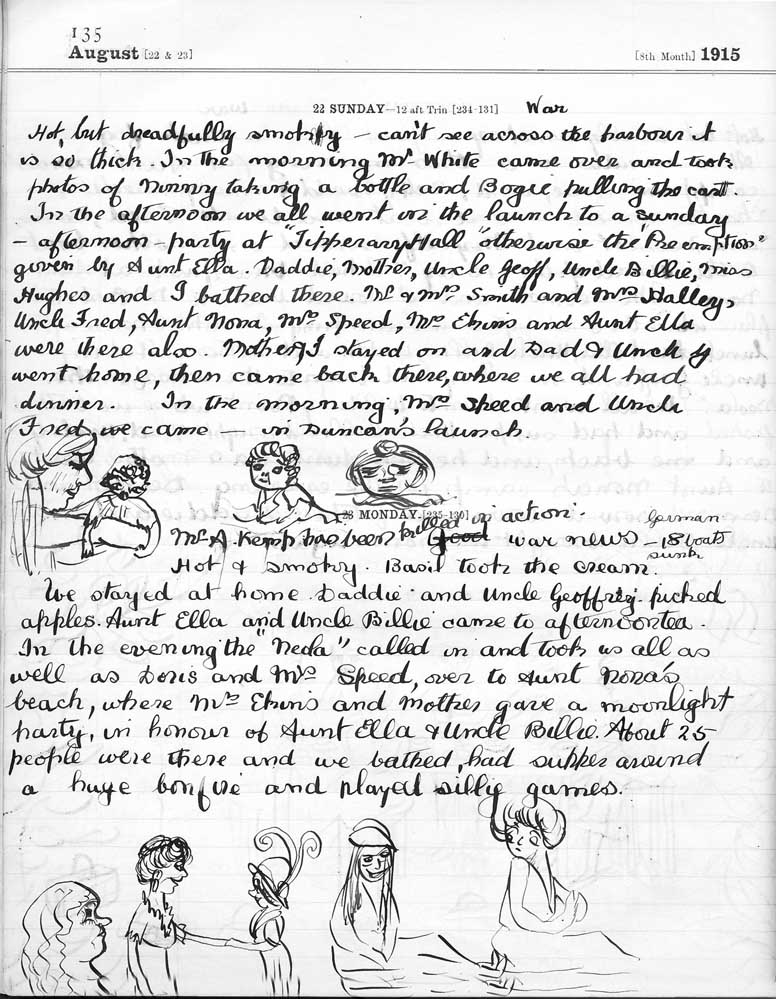 135
August [22 & 23] [8th Month] 1915
22 SUNDAY—12 aft Trin [234-131] War
Hot, but dreadfully smoky – can't see across the harbour it
is so thick. In the morning Mr White came over and took
photos of Ninny taking a bottle and Bogie pulling the cart.
In the afternoon we all went in the launch to a sunday
– afternoon – party at "Tipperary Hall" otherwise the "Pre emption"
given by Aunt Ella. Daddie, Mother, Uncle Geoff, Uncle Billie, Miss
Hughes and I bathed there. Mr & Mrs Smith and Mrs Halley,
Uncle Fred, Aunt Nona, Mrs Speed, Mrs Ekins and Aunt Ella
were there also. Mother & I stayed on and Dad & Uncle
went home, then came back there, where we all had
dinner. In the morning, Mrs Speed and Uncle
Fred we came – in Duncan's launch.
23 MONDAY [235-130]
Mr A. Kemp has been killed in action.
Good war news – German 18 boats sunk
Hot & smokey. Basil took the cream.
We stayed at home. Daddie and Uncle Geoffrey picked
apples. Aunt Ella and Uncle Billie came to afternoontea.
In the evening the "Neda" called in and took us all as
well as Doris and Mrs Speed, over to Aunt Nona's
beach, where Mrs Ekins and Mother gave a moonlight
party, in honour of Aunt Ella & Uncle Billie. About 25
people were there and we bathed, had supper around
a huge bonfire and played sillie games.